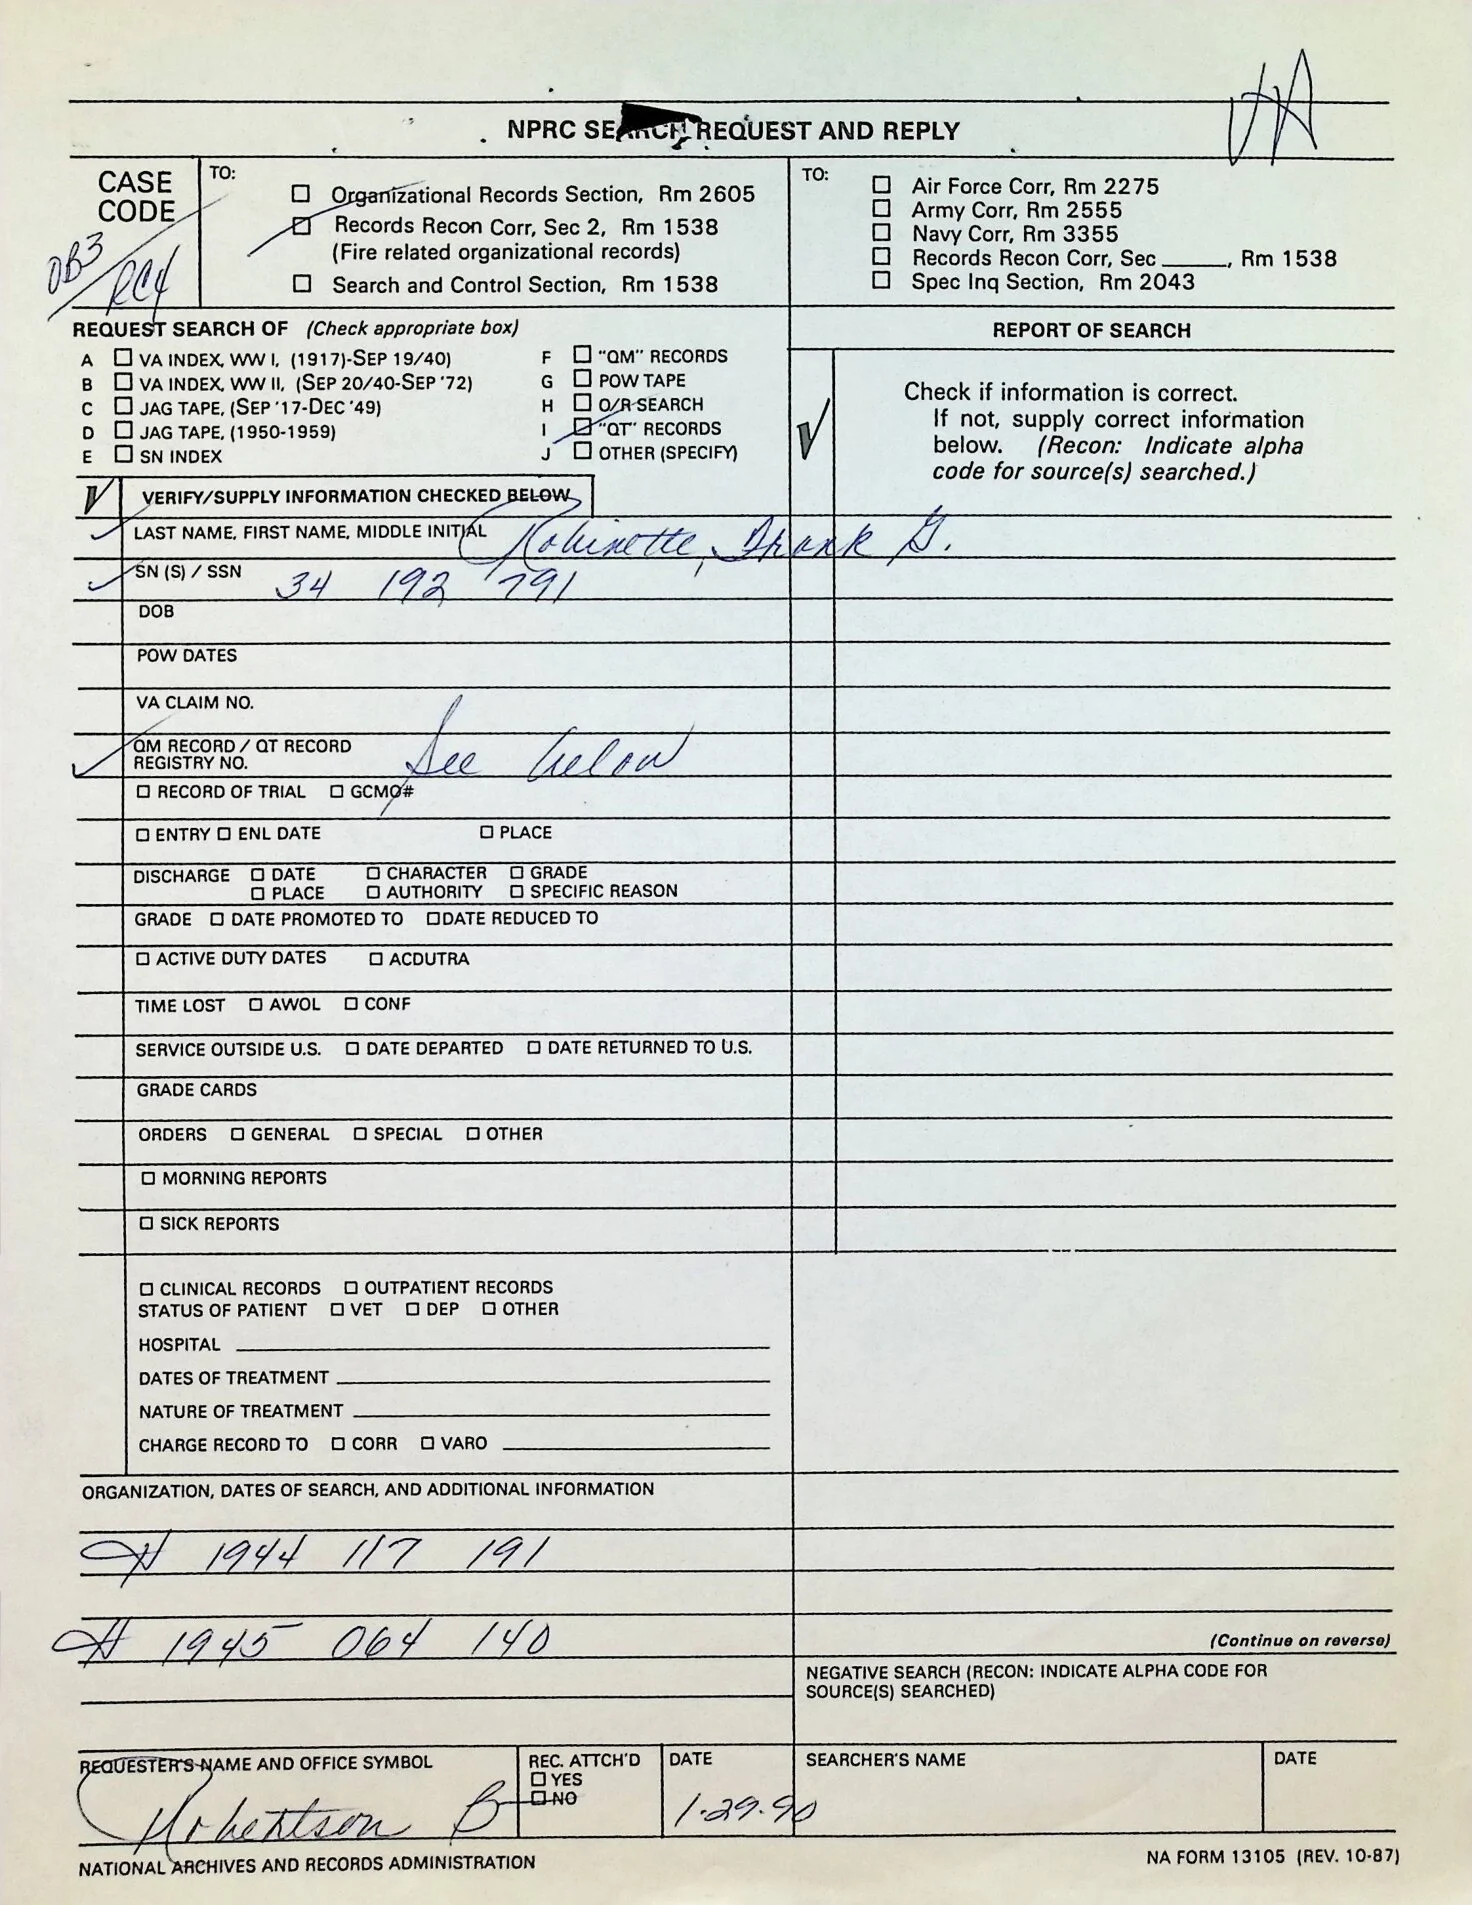 VA
NPRC SEARCH REQUEST AND REPLY
CASE
CODE
OB3/RC4
TO:
☐ Organizational Records Section, Rm 2605
☑ Records Recon Corr, Sec 2, Rm 1538
(Fire related organizational records)
☐ Search and Control Section, Rm 1538
TO:
☐ Air Force Corr, Rm 2275
☐ Army Corr, Rm 2555
☐ Navy Corr, Rm 3355
☐ Records Recon Corr, Sec _____, Rm 1538
☐ Spec Inq Section, Rm 2043
REQUEST SEARCH OF (Check appropriate box)
A ☐ VA INDEX, WW I, (1917)-SEP 19/40)
B ☐ VA INDEX, WW II, (SEP 20/40-SEP '72)
C ☐ JAG TAPE, (SEP '17-DEC '49)
D ☐ JAG TAPE, (1950-1959)
E ☐ SN INDEX
F ☐ "QM" RECORDS
G ☐ POW TAPE
H ☐ O/R SEARCH
I ☑ "QT" RECORDS
J ☐ OTHER (SPECIFY)
REPORT OF SEARCH
√ Check if information is correct.
If not, supply correct information
below. (Recon: Indicate alpha
code for source(s) searched.)
√ VERIFY/SUPPLY INFORMATION CHECKED BELOW
✓ LAST NAME, FIRST NAME, MIDDLE INITIAL Robinette, Frank G.
✓ SN (S) / SSN 34 192 791
DOB
POW DATES
VA CLAIM NO.
✓ QM RECORD / QT RECORD
REGISTRY NO. See below
☐ RECORD OF TRIAL ☐ GCMO#
☐ ENTRY ☐ ENL DATE ☐ PLACE
DISCHARGE ☐ DATE ☐ CHARACTER ☐ GRADE
☐ PLACE ☐ AUTHORITY ☐ SPECIFIC REASON
GRADE ☐ DATE PROMOTED TO ☐ DATE REDUCED TO
☐ ACTIVE DUTY DATES ☐ ACDUTRA
TIME LOST ☐ AWOL ☐ CONF
SERVICE OUTSIDE U.S. ☐ DATE DEPARTED ☐ DATE RETURNED TO U.S.
GRADE CARDS
ORDERS ☐ GENERAL ☐ SPECIAL ☐ OTHER
☐ MORNING REPORTS
☐ SICK REPORTS
☐ CLINICAL RECORDS ☐ OUTPATIENT RECORDS
STATUS OF PATIENT ☐ VET ☐ DEP ☐ OTHER
HOSPITAL
DATES OF TREATMENT
NATURE OF TREATMENT
CHARGE RECORD TO ☐ CORR ☐ VARO
ORGANIZATION, DATES OF SEARCH, AND ADDITIONAL INFORMATION
# 1944 117 191
# 1945 064 140
(Continue on reverse)
NEGATIVE SEARCH (RECON: INDICATE ALPHA CODE FOR
SOURCE(S) SEARCHED)
REQUESTER'S NAME AND OFFICE SYMBOL
Robertson B
REC. ATTCH'D
☐ YES
☐ NO
DATE
1-29-90
SEARCHER'S NAME
DATE
NATIONAL ARCHIVES AND RECORDS ADMINISTRATION
NA FORM 13105 (REV. 10-87)